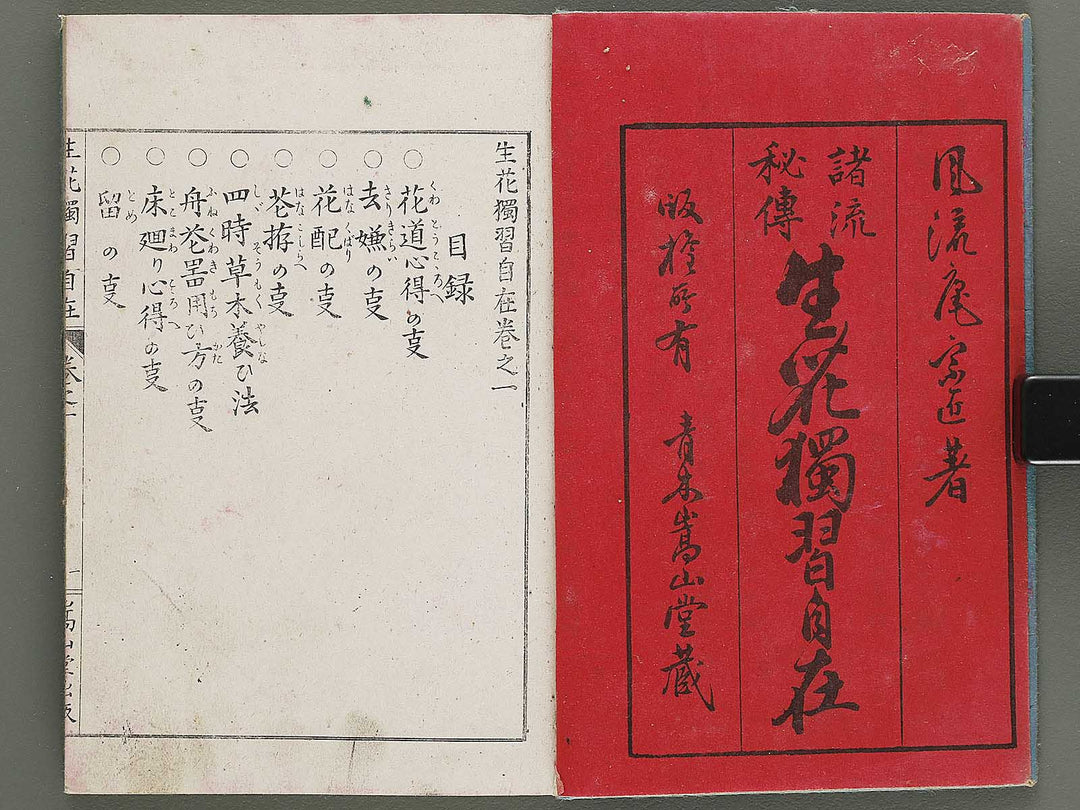 風流庵宗匠著
諸流
秘傳
生花獨習自在
版権所有　青木嵩山堂蔵
生花獨習自在巻之一
目録
○花道心得の叓
○去嫌の叓
○花配の叓
○花拵の叓
○四時草木養ひ法
○舟花器用ひ方の叓
○床廻り心得の叓
○留の叓
生花獨習自在　巻之一　一　嵩山堂出版